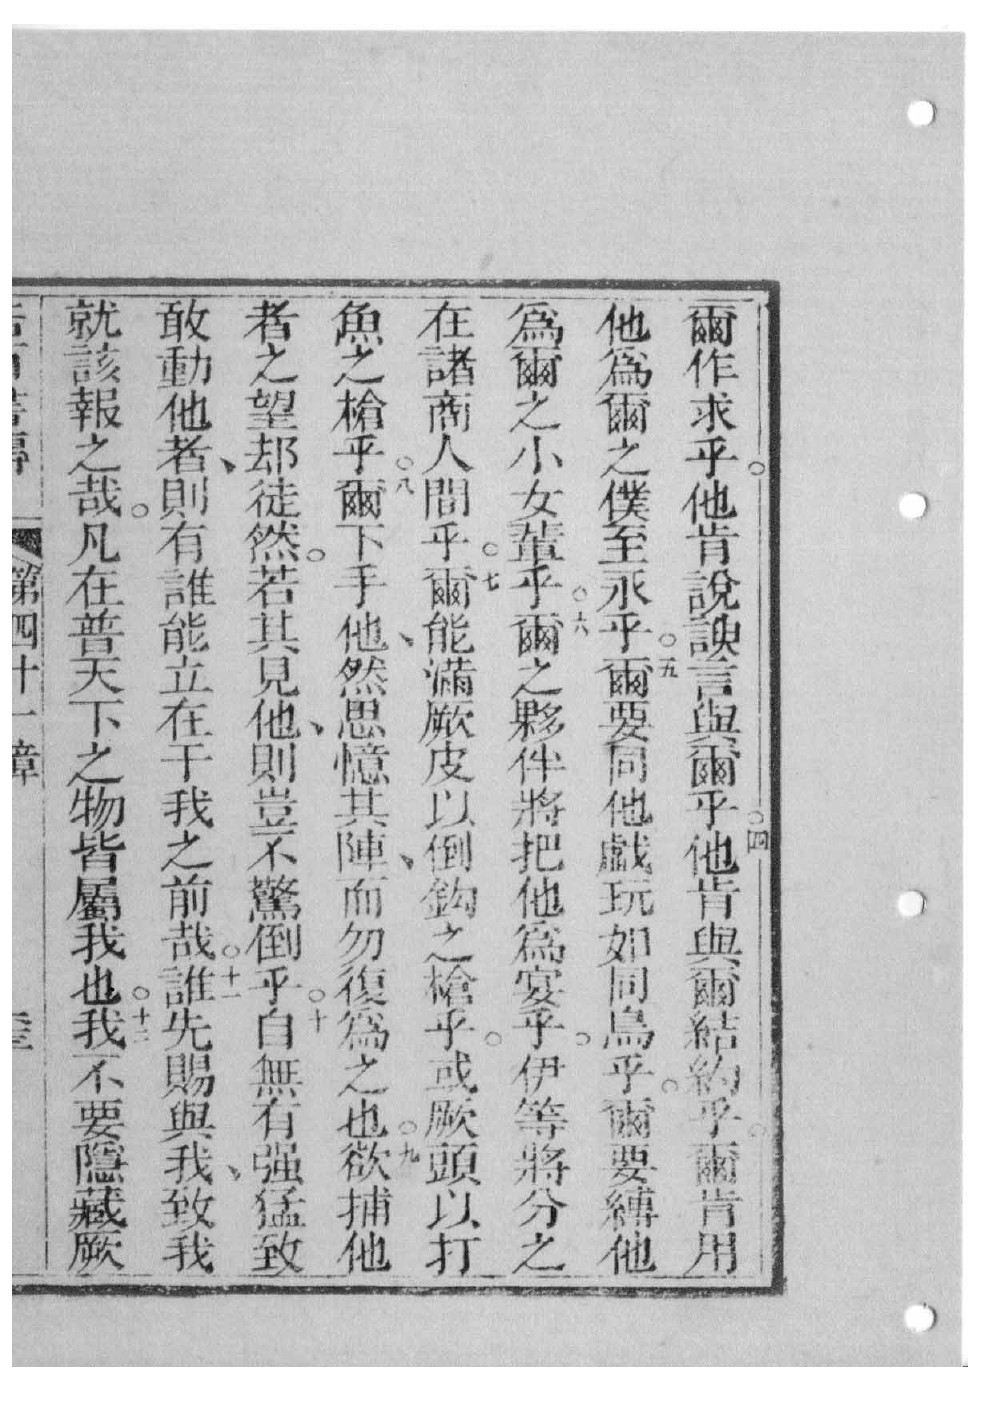 爾作求乎。他肯說諛言與爾乎。四他肯與爾結約乎。爾肯用
他爲爾之僕至永乎。五爾要同他戲玩如同鳥乎。爾要縛他
爲爾之小女輩乎。六爾之夥伴將把他爲宴乎。伊等將分之
在諸商人間乎。七爾能滿厥皮以倒鈎之槍乎。或厥頭以打
魚之槍乎。八爾下手他、然思憶其陣、而勿復爲之也。九欲捕他
者之望却徒然。若其見他、則豈不驚倒乎。十自無有强猛致
敢動他者、則有誰能立在于我之前哉。十一誰先賜與我、致我
就該報之哉。凡在普天下之物皆屬我也。十二我不要隱藏厥
第四十一章